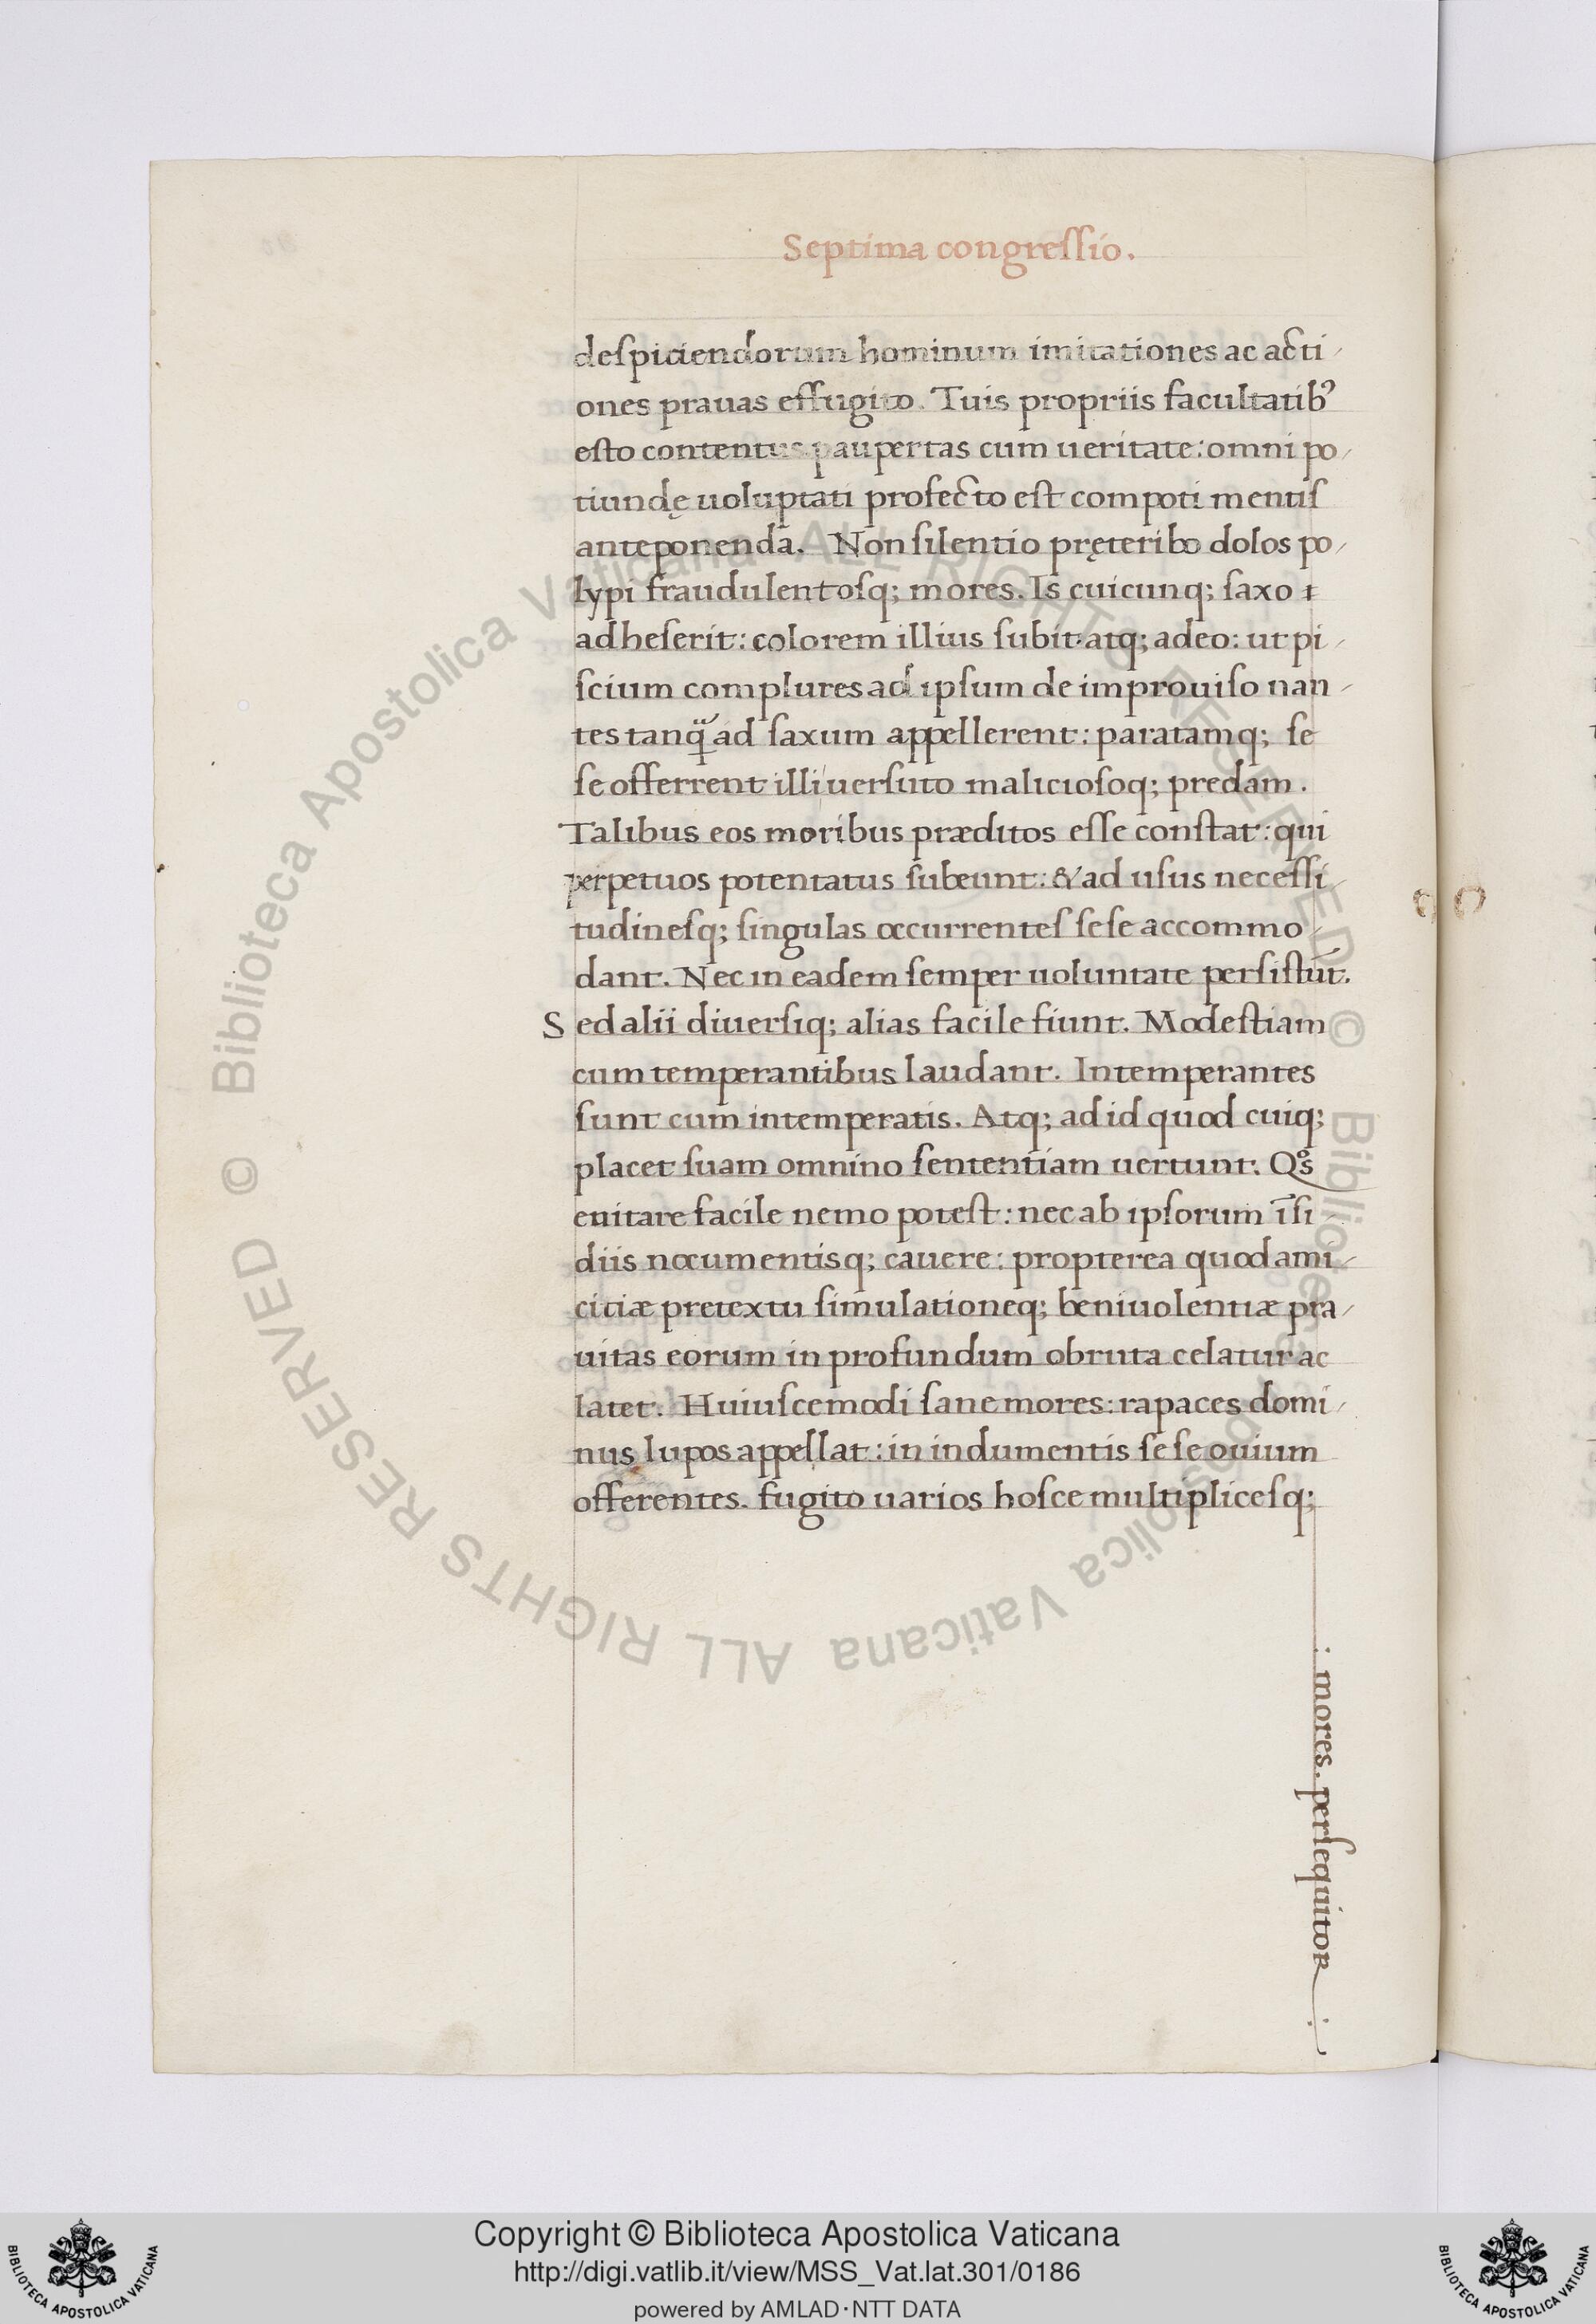 Septima congreſſio.
deſpiciendorum hominum imitationes ac acti-
ones prauas effugito. Tuis propriis facultatibꝰ
eſto contentus. paupertas cum ueritate: omni po-
tiundę uoluptati profecto eſt compoti mentiſ
anteponenda. Non ſilentio pręteribo dolos po-
lypi fraudulentoſq; mores. Is cuicunq; ſaxo
adheſerit: colorem illius ſubit. atq; adeo: ut pi-
ſcium complures ad ipſum de improuiſo nan-
tes tanq̃ ad ſaxum appellerent: paratamq; ſe
ſe offerrent illi uerſuto malicioſoq; predam.
Talibus eos moribus præditos eſſe conſtat: qui
perpetuos potentatus ſubeunt: & ad uſus neceſſi-
tudineſq; ſingulas occurrenteſ ſeſe accommo-
dant. Nec in eadem ſemper uoluntate perſiſtūt.
Sed alii diuerſiq; alias facile fiunt. Modeſtiam
cum temperantibus laudant. Intemperantes
ſunt cum intemperatis. Atq; ad id quod cuiq;
placet ſuam omnino ſententiam uertunt. Qͦs
euitare facile nemo poteſt: nec ab ipſorum īſi-
diis nocumentisq; cauere: propterea quod ami-
citiæ pretextu ſimulationeq; beniuolentiæ pra-
uitas eorum in profundum obruta celatur ac
latet. Huiuſcemodi ſane mores: rapaces domi-
nus lupos appellat: in indumentis ſeſe ouium
offerentes. fugito uarios hoſce multipliceſq;
: mores. perſequitor :
© Biblioteca Apostolica Vaticana ALL RIGHTS RESERVED © Biblioteca Apostolica Vaticana ALL RIGHTS RESERVED
Copyright © Biblioteca Apostolica Vaticana
http://digi.vatlib.it/view/MSS_Vat.lat.301/0186
powered by AMLAD·NTT DATA
BIBLIOTECA APOSTOLICA VATICANA
BIBLIOTECA APOSTOLICA VATICANA